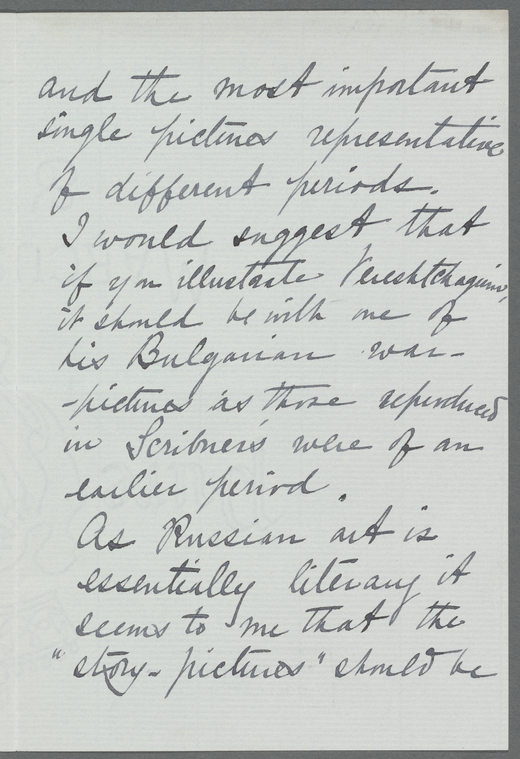 and the most important
single pictures representative
of different periods.
I would suggest that
if you illustrate Vereshtchagin,
it should be with one of
his Bulgarian war-
-pictures as those reproduced
in Scribner's were of an
earlier period.
As Russian art is
essentially literary it
seems to me that the
"story-pictures" should be